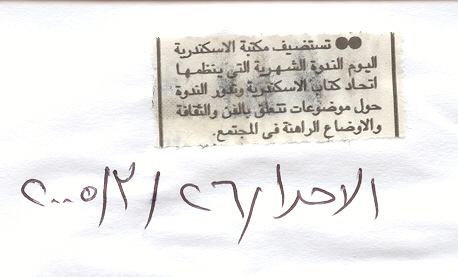 ●● تستضيف مكتبة الاسكندرية
اليوم الندوة الشهرية التي ينظمها
اتحاد كتاب الاسكندرية وتدور الندوة
حول موضوعات تتعلق بالفن والثقافة
والاوضاع الراهنة في المجتمع.
الاحرار ٢٦/٢/٢٠٠٥